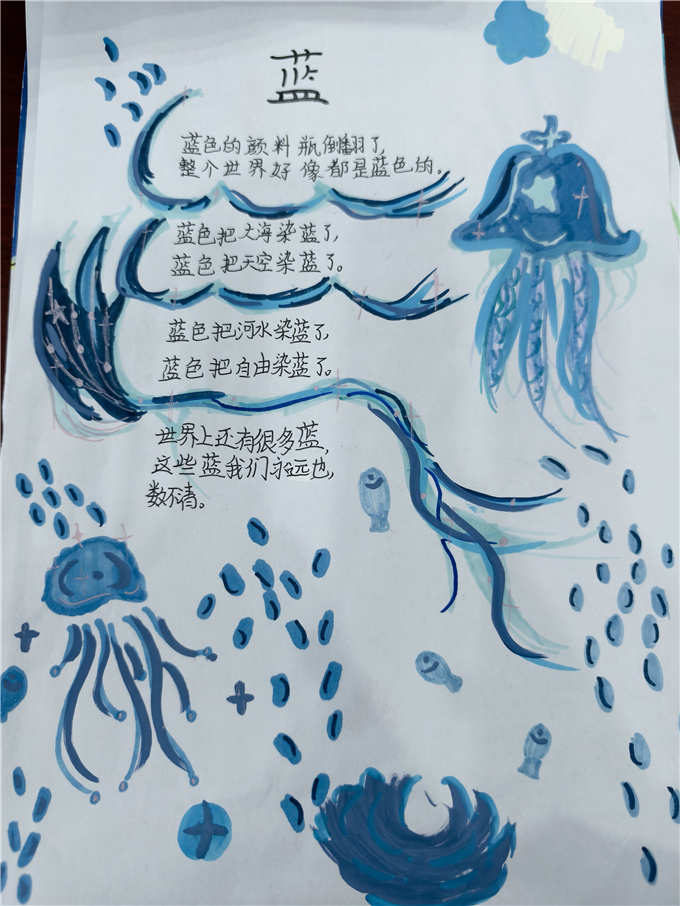 蓝
蓝色的颜料瓶倒翻了,
整个世界好像都是蓝色的。
蓝色把大海染蓝了,
蓝色把天空染蓝了。
蓝色把河水染蓝了,
蓝色把自由染蓝了。
世界上还有很多蓝,
这些蓝我们永远也,
数不清。